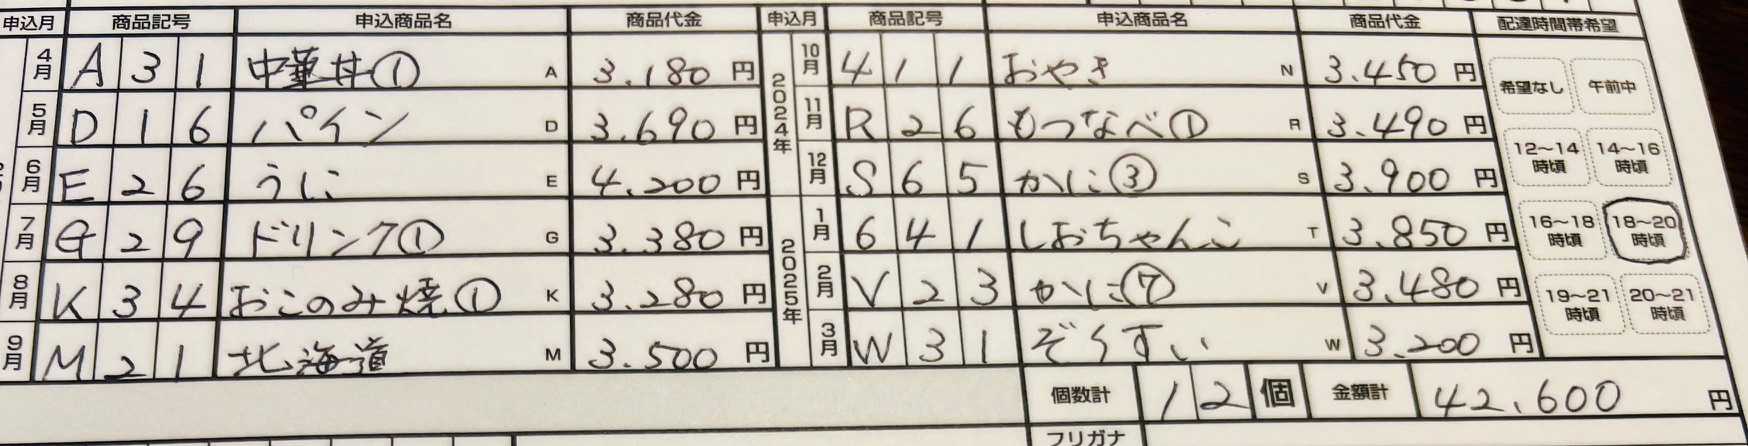 申込月 商品記号 申込商品名 商品代金 申込月 商品記号 申込商品名 商品代金 配達時間帯希望
4月 A 3 1 中華丼① A 3.180円 2024年 10月 4 1 1 おやき N 3.450円 希望なし 午前中
5月 D 1 6 パイン D 3.690円 11月 R 2 6 もつなべ① R 3.490円 12~14時頃 14~16時頃
6月 E 2 6 うに E 4.200円 12月 S 6 5 かに③ S 3.900円
7月 G 2 9 ドリンク① G 3.380円 2025年 1月 6 4 1 しおちゃんこ T 3.850円 16~18時頃 18~20時頃
8月 K 3 4 おこのみ焼① K 3.280円 2月 V 2 3 かに⑦ V 3.480円 19~21時頃 20~21時頃
9月 M 2 1 北海道 M 3.500円 3月 W 3 1 ぞうすい W 3.200円
個数計 12個 金額計 42,600円
フリガナ